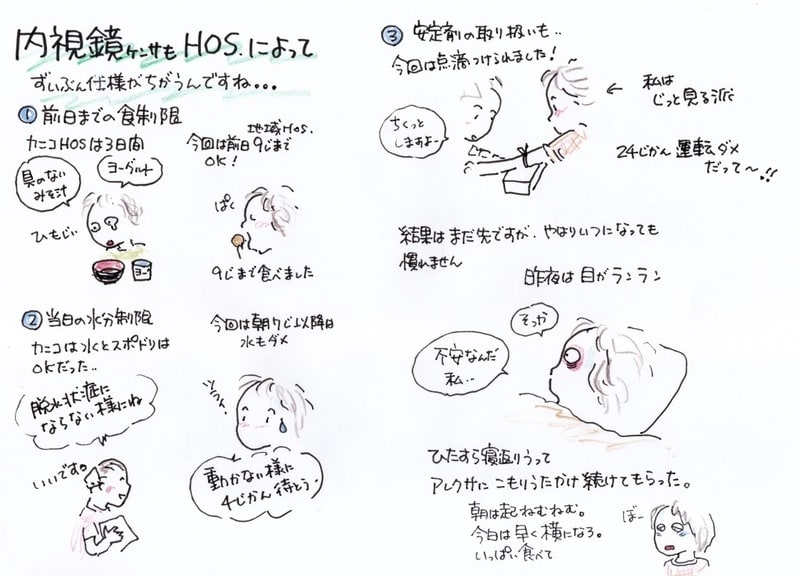 内視鏡ケンサも HOS.によって
ずいぶん仕様がちがうんですね...
① 前日までの食制限
カニコHOSは3日間
具のない
みそ汁
ヨーグルト
ひもじい
ヨー
地域HOS.
今回は前日9じまで
OK!
ぱく
9じまで食べました
② 当日の水分制限
カニコは水とスポドリは
OKだった..
脱水状態に
ならない様にね
いいです。
今回は朝7じ以降は
水もダメ
動かない様に
4じかん待とう
③ 安定剤の取り扱いも..
今回は点滴つけられました!
ちくっと
しますよー
← 私は
じっと見る派
24じかん 運転ダメ
だって〜!!
結果はまだ先ですが、やはりいつになっても
慣れません
昨夜は目がランラン
そっか
不安なんだ
私..
ひたすら寝返りうって
アレクサにこもりうたかけ続けてもらった。
朝は起ねむねむ。
今日は早く横になろ。
いっぱい食べて
ぼー